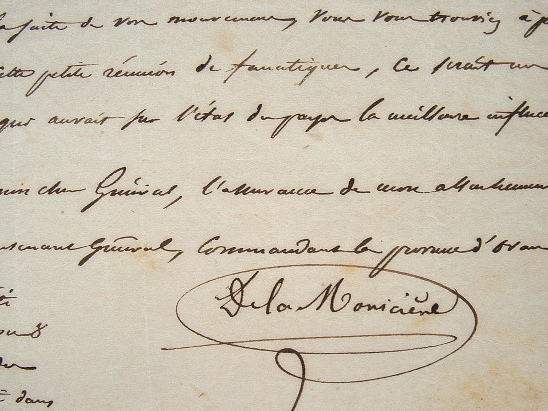 la suite de vos mouvemens, vous vous trouviez à p
cette petite réunion de fanatiques, ce serait un
qui aurait sur l'état du pays la meilleure influence
mon cher Général, l'assurance de mon attachement
Lieutenant Général, Commandant la province d'Oran
De la Moricière
8
dans